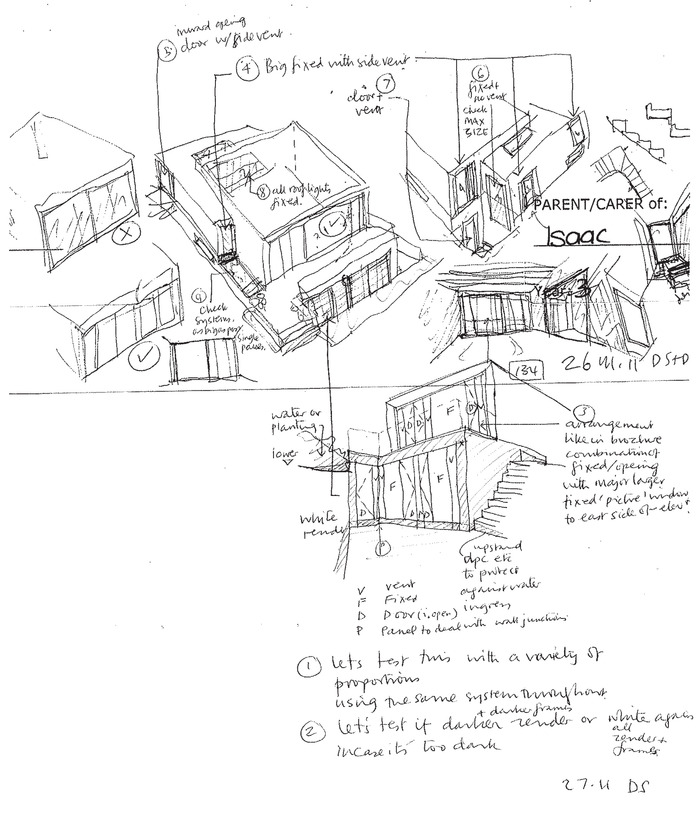 inward opening
5 door w/ side vent.
4 Big fixed with side vent
7
door +
vent
6
fixed +
no vent
check
MAX
SIZE
8 all rooflights
fixed.
PARENT/CARER of:
Isaac
9
Check
systems.
single
26 DS
134
water or
planting
lower
white
render
3
arrangement
like in brochure
combination of
fixed/opening
with major larger
fixed 'picture' window
to east side of elev
D D V F D V
V F F V
D D D
P
upstand
dpc etc
to protect
against water
ingress
V vent
F Fixed
D Door (i.open)
P Panel to deal with wall junctions.
1 let's test this with a variety of
proportions
using the same system throughout
+ darker frames
2 let's test if darker render or white again
all
render +
frames
incase it's too dark
27.11 DS